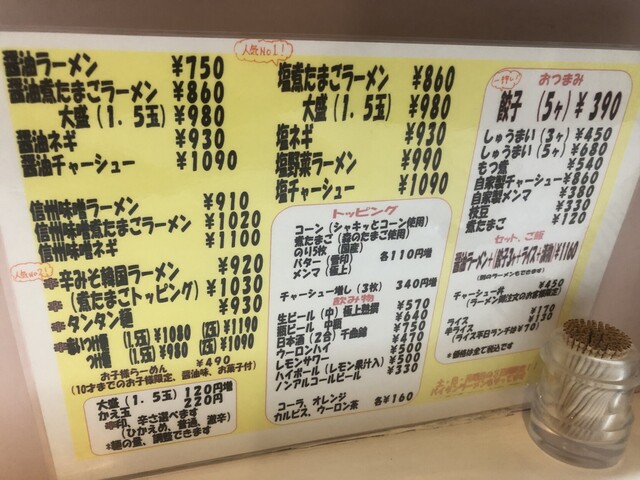 醤油ラーメン ¥750
醤油煮たまごラーメン ¥860
大盛(1.5玉) ¥980
醤油ネギ ¥930
醤油チャーシュー ¥1090
信州味噌ラーメン ¥910
信州味噌煮たまごラーメン ¥1020
信州味噌ネギ ¥1100
辛みそ韓国ラーメン ¥920
(煮たまごトッピング) ¥1030
タンタン麺 ¥930
(1.5玉) ¥1080 (2玉) ¥1190
つけ麺 (1.5玉) ¥980 (2玉) ¥1090
お子様らーめん ¥490
(10才までのお子様限定、醤油味、お菓子付)
大盛(1.5玉) 120円増
かえ玉 220円
辛印、辛さ選べます
(ひかえめ、普通、激辛)
*麺の量、調整できます
人気No1!
塩煮たまごラーメン ¥860
大盛(1.5玉) ¥980
塩ネギ ¥930
塩野菜ラーメン ¥990
塩チャーシュー ¥1090
トッピング
コーン(シャキッとコーン使用)
煮たまご(森のたまご使用)
のり5枚(国産)
バター(雪印)
メンマ(極上)
各110円増
チャーシュー増し(3枚) 340円増
飲み物
生ビール(中)極上熱撰 ¥570
瓶ビール 中瓶 ¥640
日本酒(2合)千曲錦 ¥750
ウーロンハイ ¥470
ハイボール(レモン果汁入) ¥500
ノンアルコールビール ¥330
コーラ、オレンジ
カルピス、ウーロン茶 各¥160
一押し!
おつまみ
餃子(5ヶ) ¥390
しゅうまい(3ヶ) ¥450
しゅうまい(5ヶ) ¥680
もつ煮 ¥540
自家製チャーシュー ¥860
自家製メンマ ¥380
枝豆 ¥330
煮たまご ¥120
セット、ご飯
¥1160
チャーシュー丼 ¥450
(ラーメン御注文のお客様限定)
ライス ¥170
半ライス ¥130
(ライス平日ランチは¥70)
*価格は全て税込です